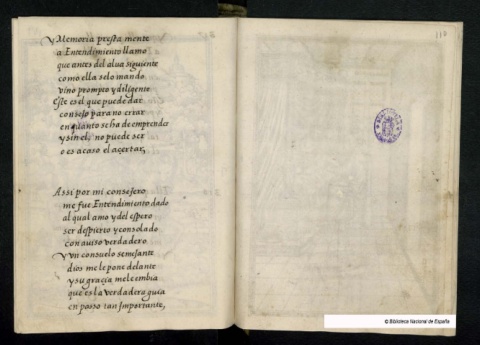 y Memoria presta mente
a Entendimiento llamo
que antes del alua siguiente
como ella selo mando
vino prompto y diligente
Este es el que puede dar
consejo para no errar
en quanto se ha de emprender
y sin el, no puede ser
o es acaso el açertar,
Assi por mi consejero
me fue Entendimiento dado
al qual amo y del espero
ser despierto y consolado
con auiso verdadero
y vn consuelo semejante
dios me le pone delante
y su graçia me le embia
que es la verdadera guia
en passo tan importante,
110
© Biblioteca Nacional de España